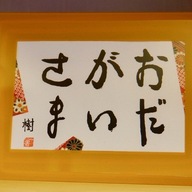 おだ
がい
さま
樹